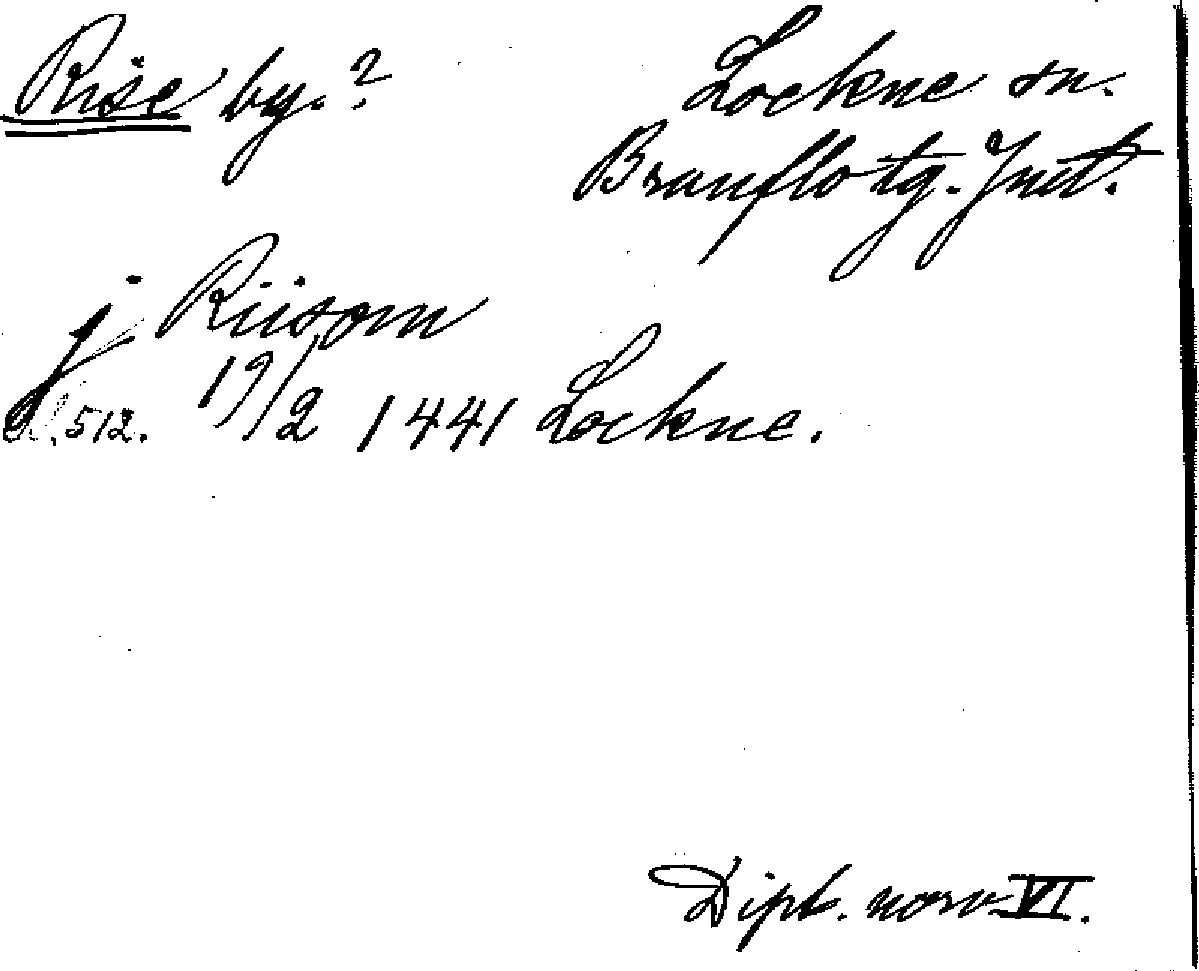 Rise by.? Lockne sn.
Brunflo tg. Jmt.
j Riisom
s. 512. 19/2 1441 Lockne.
Dipl. norv. VI.